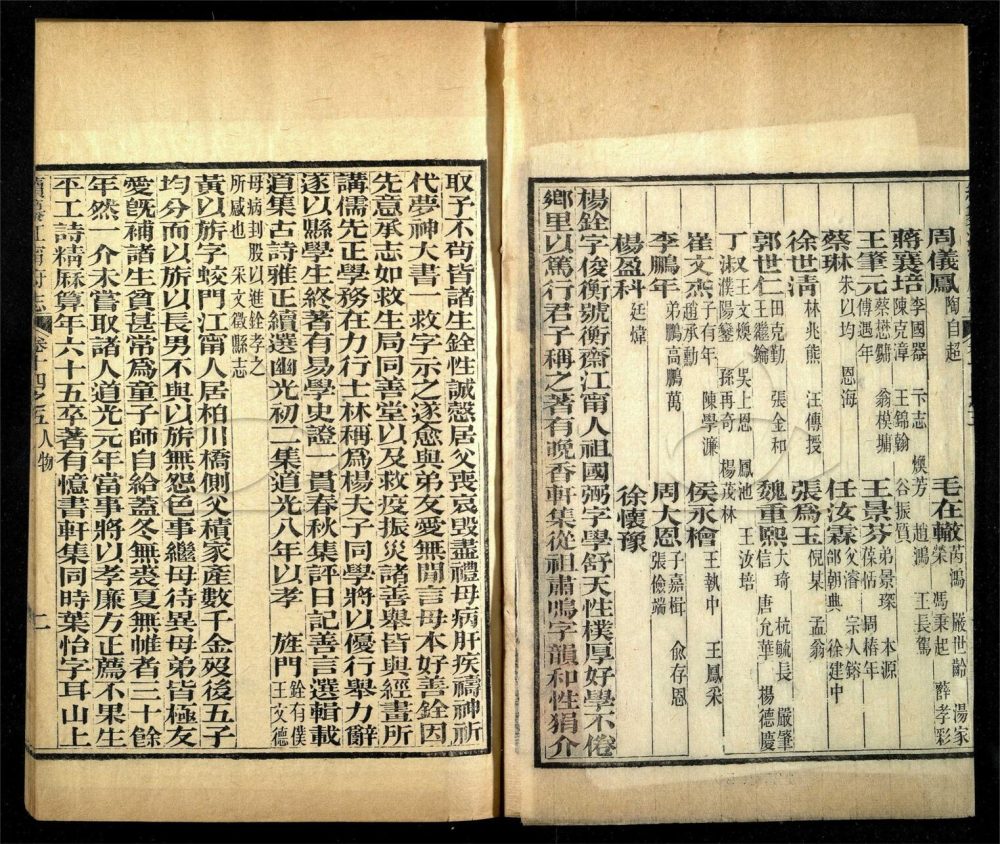 周儀鳳 陶自超 毛在轍 芮鴻 嚴世齡 湯家榮 馮秉起 薛孝彩
蔣襄培 李國器 卞志煥 芳 趙鴻 王長駕 陳克漳 王錦翰 谷振質
王肇元 蔡懋鏞 翁模墉 傅遇年 王景芬 弟景琛 本源 葆恬 周椿年
蔡琳 朱以均 恩海 任汝霖 父濬 宗人鎔 邰朝典 徐建中
徐世淸 林兆熊 汪傳授 張爲玉 倪某 孟翁
郭世仁 田克勤 張金和 王繼鑰 魏重熙 大琦 杭毓長 嚴肇信 唐允華 楊德慶
丁 又王文煥 吳上恩 鳳池 王汝培 沫濮陽鑾 孫再奇 楊茂林
崔文杰 子有年 陳學濂 趙承勳 侯永檜 王執中 王鳳釆
李鵬年 弟鵬高鵬萬 周大恩 子嘉楫 俞存恩 張儉端
楊盈科 廷煒 徐懷豫
楊銓字俊衡號衡齋江甯人祖國弼字學舒天性樸厚好學不倦
鄉里以篤行君子稱之著有晚香軒集從祖肅鳴字韻和性狷介
取予不苟皆諸生銓性誠愨居父喪哀毀盡禮母病肝疾禱神祈
代夢神大書一救字示之遂愈與弟友愛無閒言母本好善銓因
先意承志如救生局同善堂以及救疫振災諸善舉皆與經畫所
講儒先正學務在力行士林稱爲楊夫子同學將以優行舉力辭
遂以縣學生終著有易學史證一貫春秋集評日記善言選輯載
道集古詩雅正續選幽光初二集道光八年以孝 旌門 銓有僕王文德
母病刲股以進銓孝之所感也 采文徵縣志
黃以旂字蛟門江甯人居柏川橋側父積家產數千金歿後五子
均分而以旂以長男不與以旂無怨色事繼母待異母弟皆極友
愛旣補諸生貧甚常爲童子師自給蓋冬無裘夏無帷者三十餘
年然一介未嘗取諸人道光元年當事將以孝廉方正薦不果生
平工詩精厤算年六十五卒著有憶書軒集同時葉怡字耳山上
續纂江甯府志 卷十四之五 人物 二